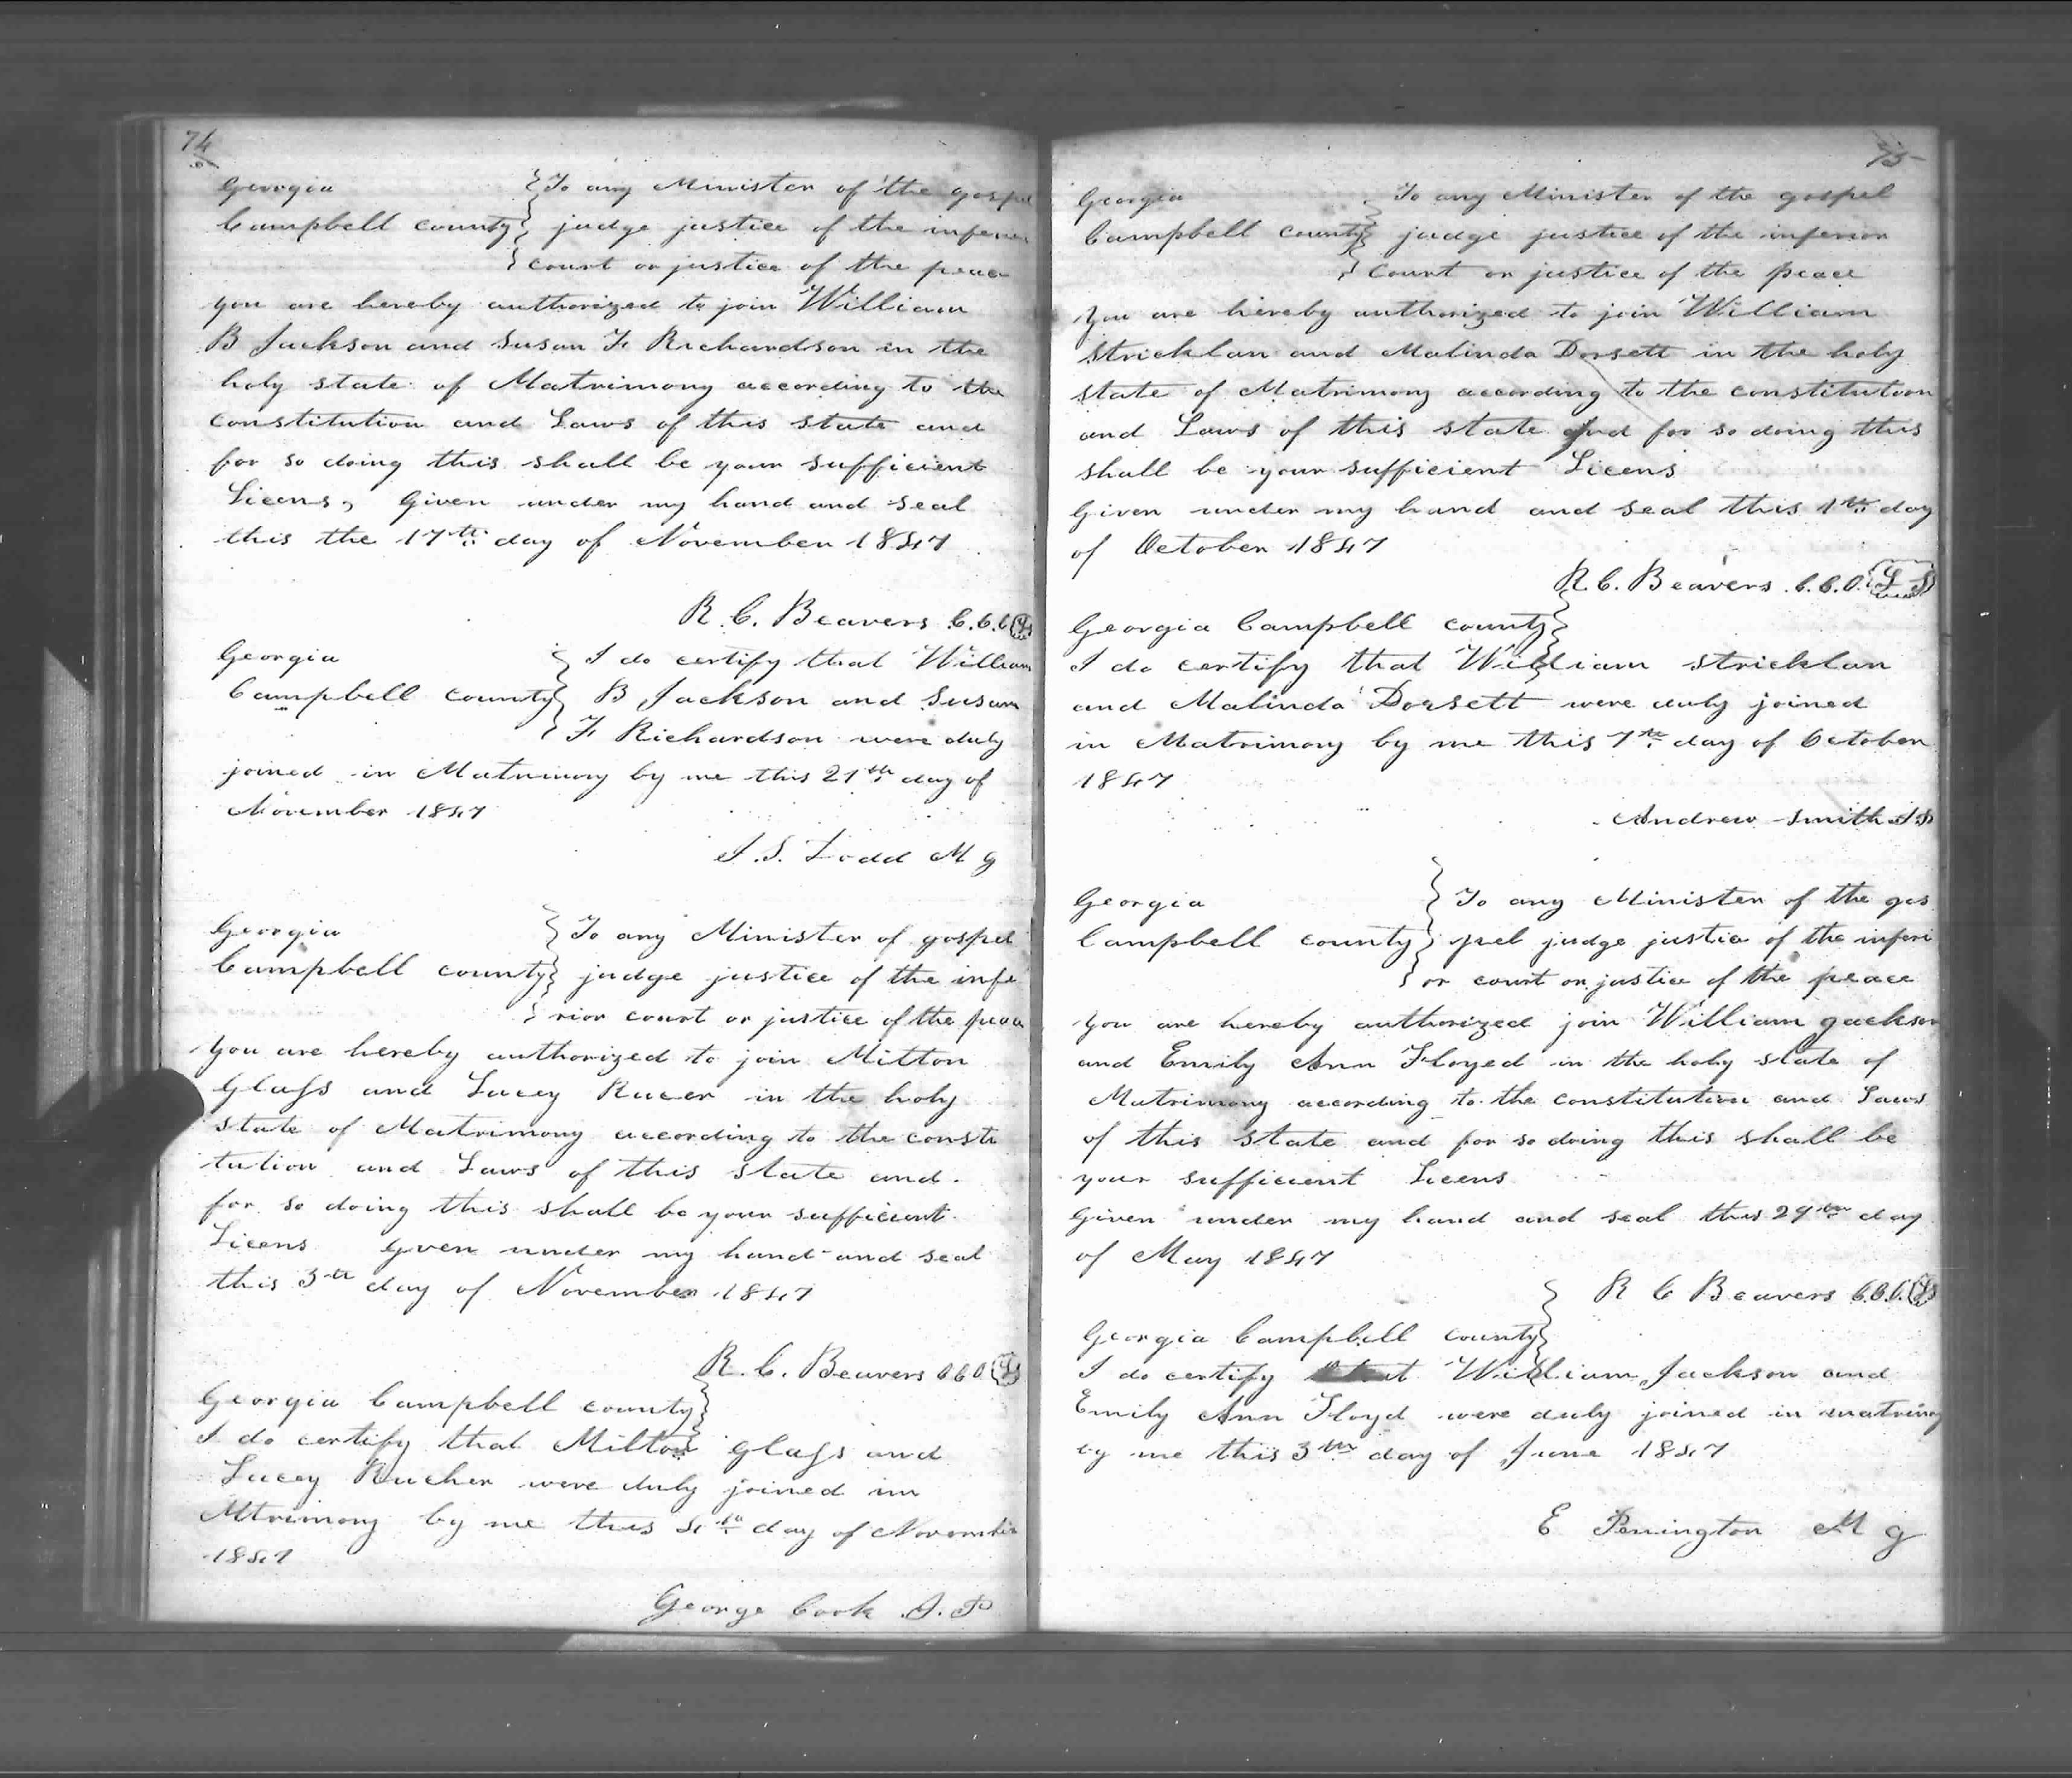 74
Georgia
Campbell county
To any Minister of the gospel
judge justice of the inferior
court or justice of the peace
you are hereby authorized to join William
B Jackson and Susan F Richardson in the
holy state of Matrimony according to the
constitution and Laws of this state and
for so doing this shall be your sufficient
Licens, Given under my hand and seal
this the 17th day of November 1847
R. C. Beavers C.C.O LS
Georgia
Campbell county
I do certify that William
B Jackson and Susan
F Richardson were duly
joined in Matrimony by me this 21th day of
November 1847
J. S. Dodd M G
Georgia
Campbell county
To any Minister of gospel
judge justice of the infe
rior court or justice of the peace
You are hereby authorized to join Milton
Glass and Lucey Rucer in the holy
state of Matrimony according to the consti
tution and Laws of this state and
for so doing this shall be your sufficient
Licens Gven under my hand and seal
this 3th day of November 1847
R. C. Beavers C C O LS
Georgia Campbell county
I do certify that Milton Glass and
Lucey Rucker were duly joined in
Mtrimony by me this 4th day of November
1847
George Cook J. P
75
Georgia
Campbell county
To any Minister of the gospel
judge justice of the inferior
court or justice of the peace
You are hereby authorized to join William
Stricklan and Malinda Dorsett in the holy
state of Matrimony according to the constitution
and Laws of this state and for so doing this
shall be your sufficient Licens
Given under my hand and seal this 1th day
of October 1847
R. C. Beavers C.C.O. L S
Georgia Campbell county
I do certify that William Stricklan
and Malinda Dorsett were duly joined
in Matrimony by me this 7th day of October
1847
Andrew Smith JP
Georgia
Campbell county
To any Minister of the gos
pel judge justice of the inferi
or court or justice of the peace
You are hereby authorized join William Jackson
and Emily Ann Floyed in the holy state of
Matrimony according to the constitution and Laws
of this state and for so doing this shall be
your sufficient Licens
Given under my hand and seal this 29th day
of May 1847
R C Beavers C.C.O. LS
Georgia Campbell county
I do certify that William Jackson and
Emily Ann Floyd were duly joined in matrimony
by me this 3th day of June 1847
E Penington M G